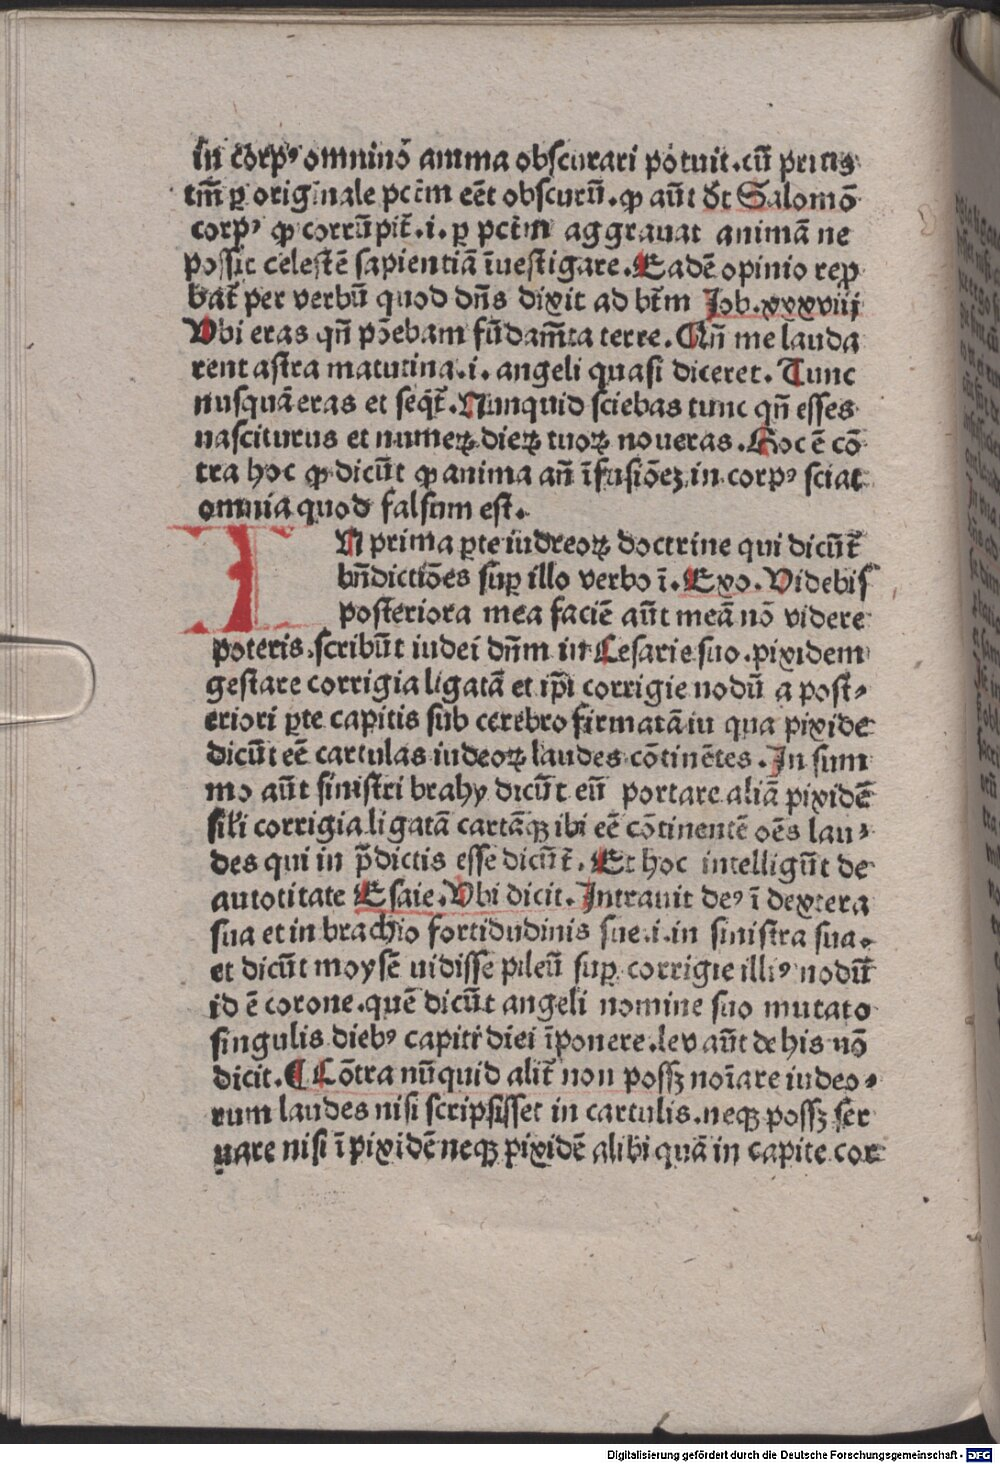 in corpꝰ omnino anima obscurari potuit. cū prius
tm̄ ꝑ originale pctm̄ eēt obscurū. ꝙ aūt dt Salomō
corpꝰ ꝙ corrūpit̄. i. ꝑ pctm̄ aggrauat animā ne
possit celestē sapientiā īuestigare. Eadē opinio repro
bat̄ per verbū quod dn̄s dixit ad btm̄ Job. xxxviij
Vbi eras qn̄ pōebam fūdam̄ta terre. Qn̄ me lauda
rent astra matutina. i. angeli quasi diceret. Tunc
nusquā eras et seqt̄. Nunquid sciebas tunc qn̄ esses
nasciturus et numeꝝ dieꝝ tuoꝝ noueras. Hoc ē cō
tra hoc ꝙ dicūt ꝙ anima an̄ īfusiōeꝫ in corpꝰ sciat
omnia quod falsum est.
IN prima ꝑte iudreoꝝ doctrine qui dicūt̄
bn̄dictiōes suꝑ illo verbo ī. Exo. Videbis
posteriora mea faciē aūt meā nō videre
poteris. scribūt iudei dn̄m in Cesarie suo pixidem
gestare corrigia ligatā et ip̄i corrigie nodū a post⸗
eriori ꝑte capitis sub cerebro firmatā iu qua pixide
dicūt eē cartulas iudeoꝝ laudes cōtinētes. In sum
mo aūt sinistri brahy dicūt eū portare aliā pixidē
sil̄i corrigia ligatā cartāqꝫ ibi eē cōtinentē oēs lau⸗
des qui in p̄dictis esse dicūt̄. Et hoc intelligūt de
autotitate Esaie. Vbi dicit. Intrauit deꝰ ī dextera
sua et in brachio fortidudinis sue. i. in sinistra sua.
et dicūt moysē uidisse pileū suꝑ corrigie illiꝰ nodū
id ē corone. quē dicūt angeli nomine suo mutato
singulis diebꝰ capiti diei īponere. lev aūt de his nō
dicit. ¶ Cōtra nūquid alit̄ non possꝫ noīare iudeo⸗
rum laudes nisi scripsisset in cartulis. neqꝫ possꝫ ser
uare nisi ī pixidē neqꝫ pixidē alibi quā in capite cor
Digitalisierung gefördert durch die Deutsche Forschungsgemeinschaft - DFG